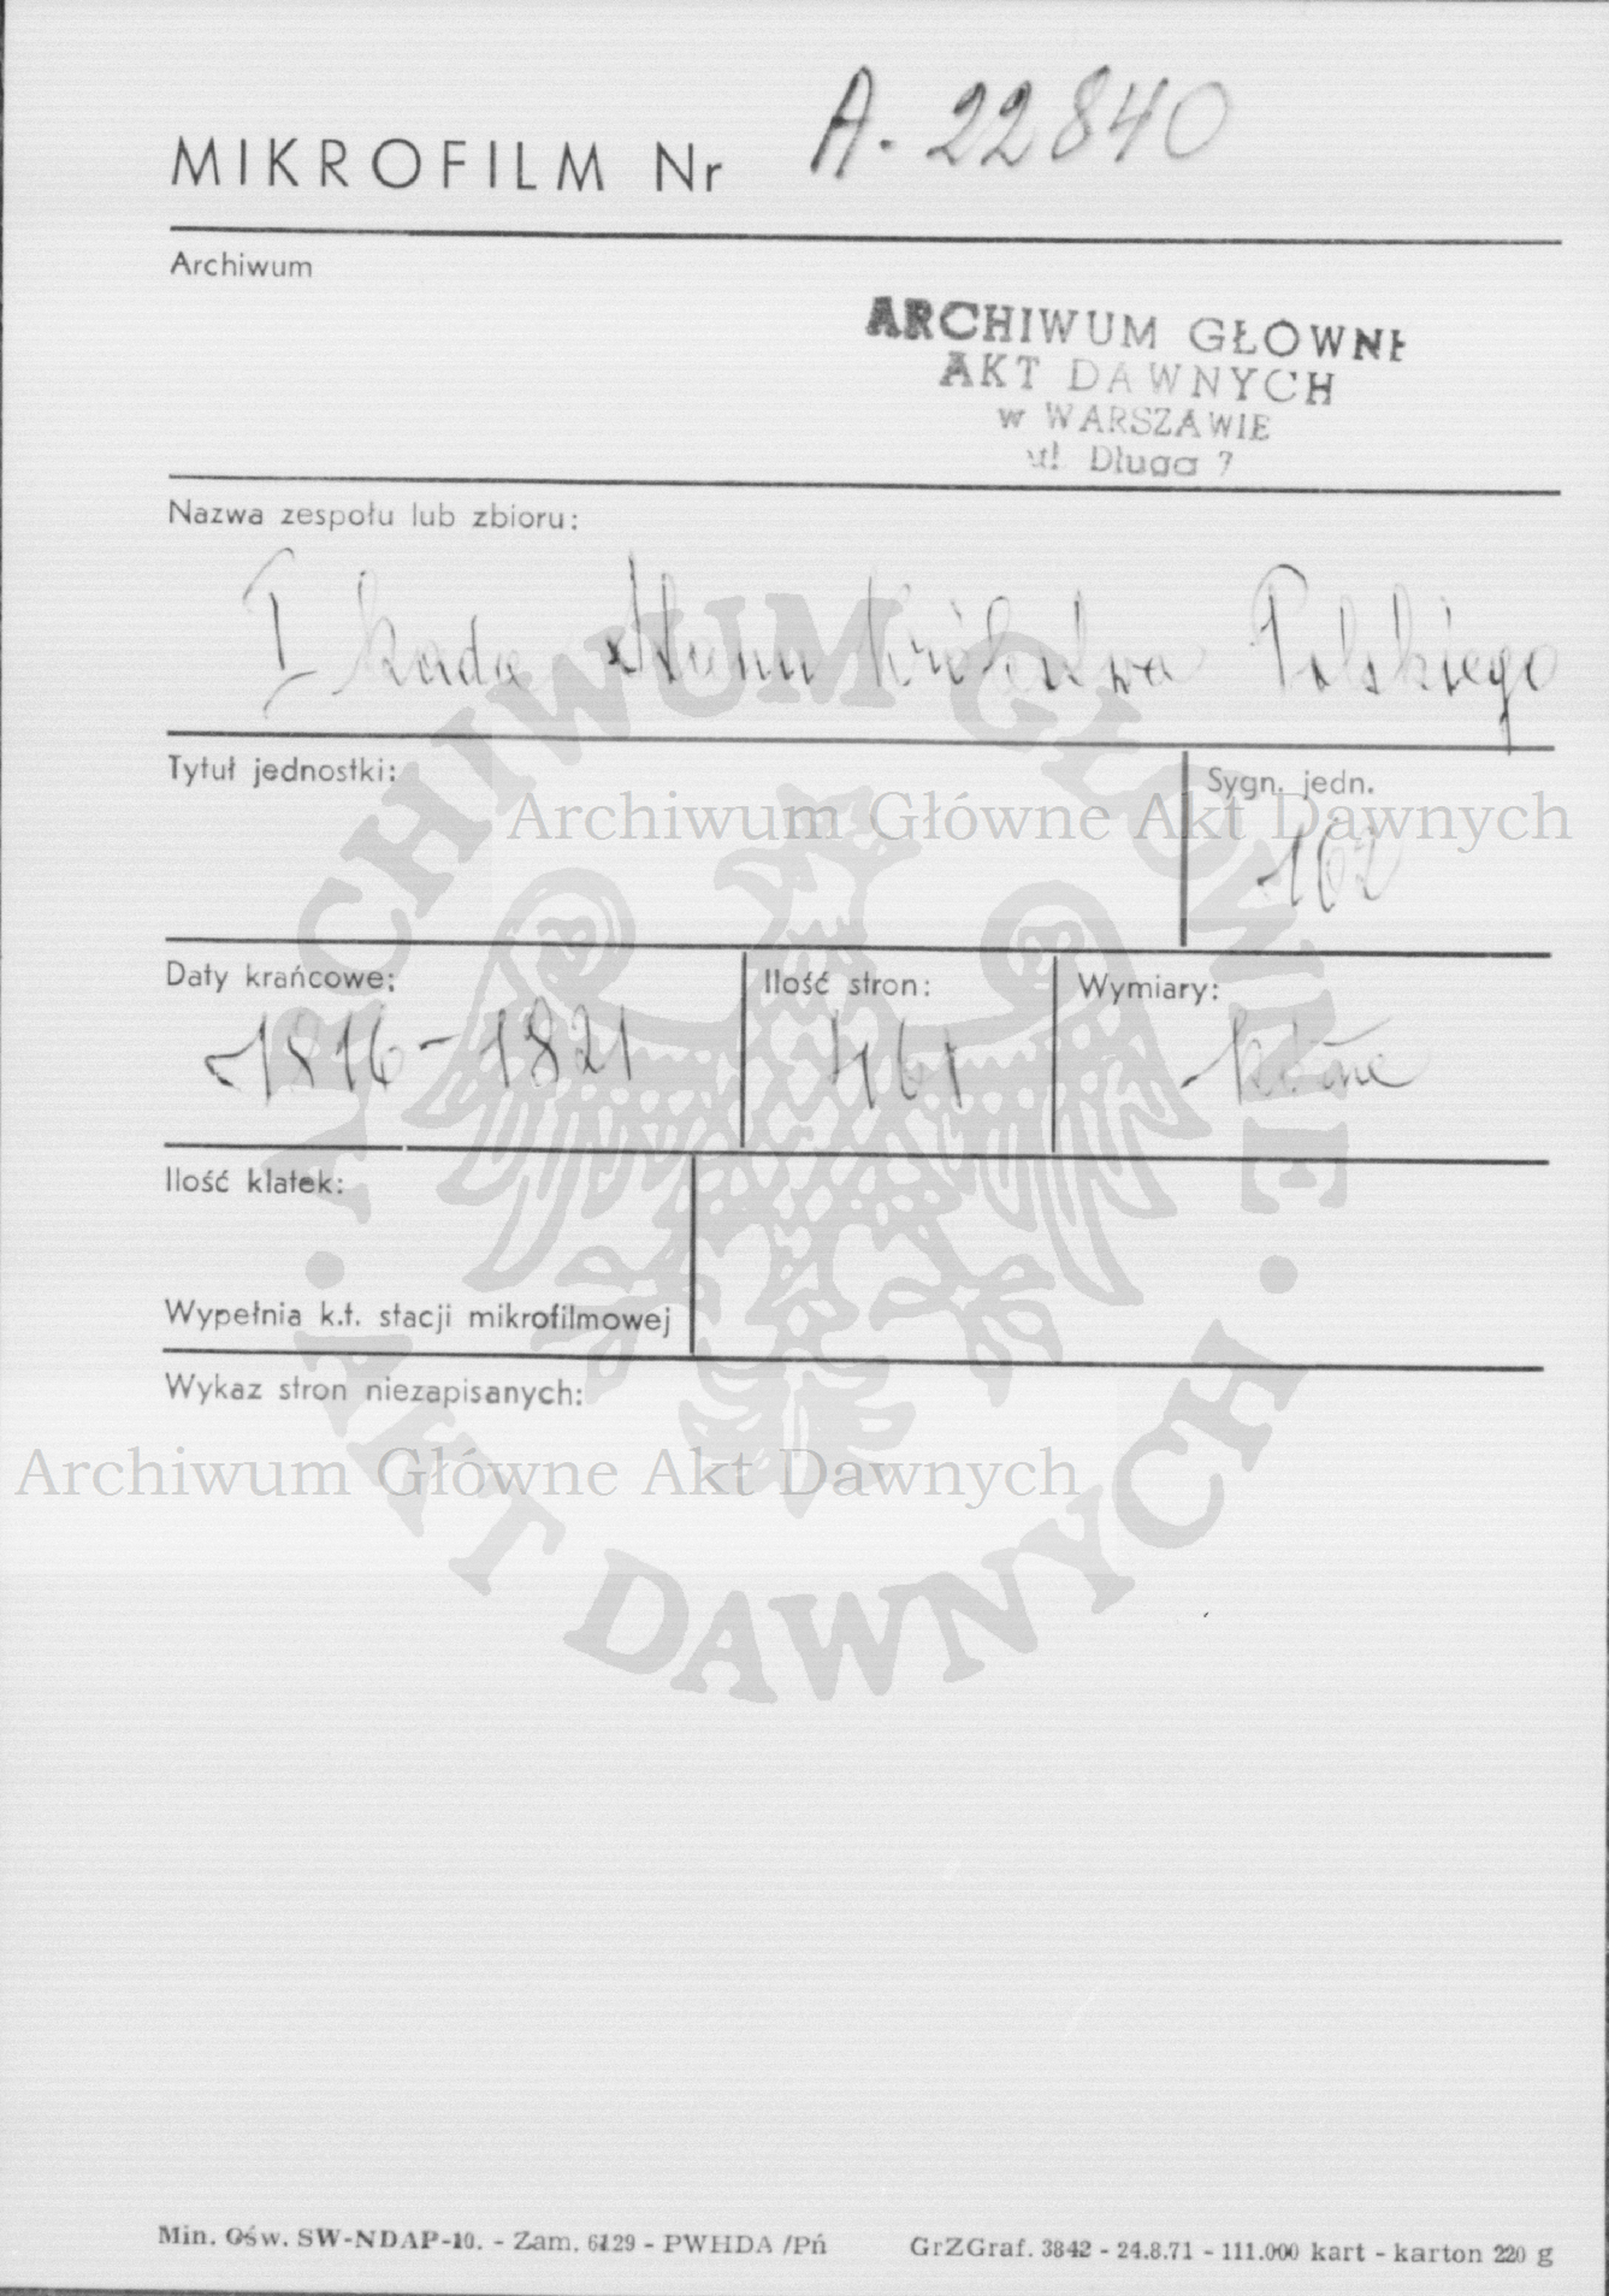 MIKROFILM Nr A. 22840
Archiwum
ARCHIWUM GŁOWNE
AKT DAWNYCH
w WARSZAWIE
ul. Długa 7
Nazwa zespołu lub zbioru:
I Rada Stanu Królestwa Polskiego
Tytuł jednostki:
Sygn. jedn.
Archiwum Główne Akt Dawnych
162
Daty krańcowe:
Ilość stron:
Wymiary:
1816-1821
461
różne
Ilość klatek:
Wypełnia k.t. stacji mikrofilmowej
Wykaz stron niezapisanych:
Archiwum Główne Akt Dawnych
ARCHIWUM GŁÓWNE · AKT DAWNYCH ·
Min. Ośw. SW-NDAP-10. - Zam. 6129 - PWHDA /Pń
GrZGraf. 3842 - 24.8.71 - 111.000 kart - karton 220 g